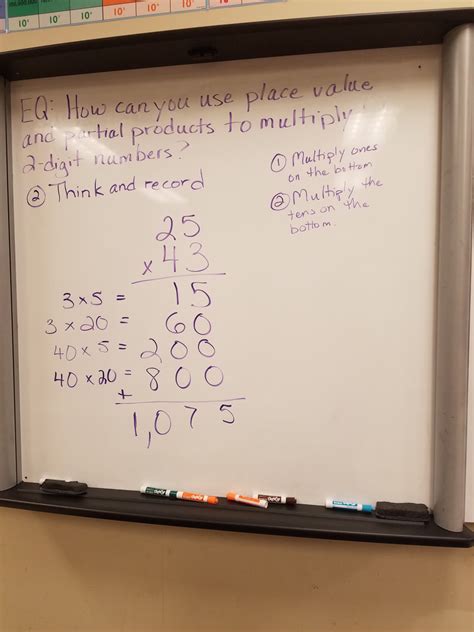 10⁺ 10⁺ 10⁺ 10⁺ 10⁺ 10⁺
EQ: How can you use place value
and partial products to multiply
2-digit numbers?
② Think and record
① Multiply ones
on the bottom
② Multiply the
tens on the
bottom.
25
x 43
3x5 = 15
3 x 20 = 60
40 x 5 = 200
40 x 20 = 800
+
1,075